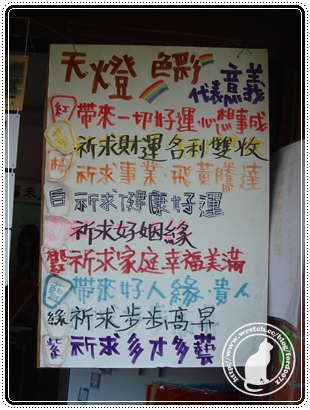 天燈 色彩
代表意義
紅 帶來一切好運.心想事成
黃 祈求財運名利雙收
橘 祈求事業.飛黃騰達
白 祈求健康好運
祈求好姻緣
祈求家庭幸福美滿
藍 帶來好人緣.貴人
緣 祈求步步高昇
紫 祈求多才多藝